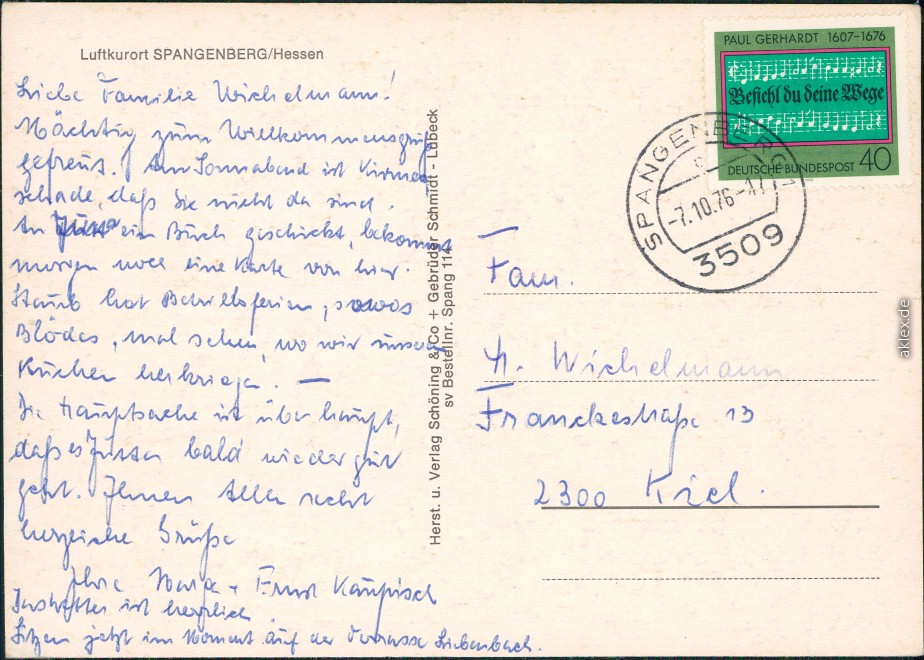 Luftkurort SPANGENBERG/Hessen
Liebe Familie Wichelmann!
Mächtig zum Willkommensgruß
gefreut. Am Sonnabend ist Kirmes
schade, daß Sie nicht da sind.
An Jutta ein Buch geschickt, bekommt
morgen noch eine Karte von hier.
Staub hat Betriebsferien, sowas
Blödes, mal sehen, wo wir unseren
Kuchen herkriegen. —
Die Hauptsache ist überhaupt,
daß es Jutta bald wieder gut
geht. Ihnen Allen recht
herzliche Grüße
Ihre Maria + Ernst Kaupisch
ist herrlich
Sitzen jetzt im Moment auf der Terrasse Liebenbach.
Herst. u. Verlag Schöning & Co + Gebrüder Schmidt - Lübeck
sv Bestellnr. Spang 114
PAUL GERHARDT 1607-1676
Befiehl du deine Wege
DEUTSCHE BUNDESPOST 40
SPANGENBERG 1
-7.10.76-17
3509
Fam.
H. Wichelmann
Franckestraße 13
2300 Kiel.
aklex.de